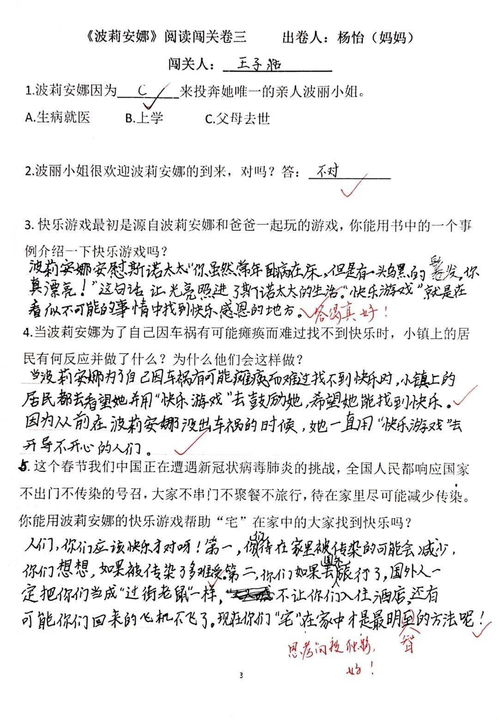 《波莉安娜》阅读闯关卷三 出卷人：杨怡（妈妈）
闯关人：王子
1.波莉安娜因为 C 来投奔她唯一的亲人波丽小姐。
A.生病就医 B.上学 C.父母去世
2.波丽小姐很欢迎波莉安娜的到来，对吗？答：不对
3.快乐游戏最初是源自波莉安娜和爸爸一起玩的游戏，你能用书中的一个事
例介绍一下快乐游戏吗？
波莉安娜安慰斯诺太太“你虽然常年卧病在床，但是有一头乌黑的鬈发，你
真漂亮！”这句话让光亮照进了斯诺太太的生活。“快乐游戏”就是在
看似不可能的事情中找到快乐、感恩的地方。答得真好！
4.当波莉安娜为了自己因车祸有可能瘫痪而难过找不到快乐时，小镇上的居
民有何反应并做了什么？为什么他们会这样做？
当波莉安娜为了自己因车祸有可能瘫痪而难过找不到快乐时，小镇上的
居民都去看望她并用“快乐游戏”去鼓励她，希望她能找到快乐。
因为从前在波莉安娜没出车祸的时候，她一直用“快乐游戏”去
开导不开心的人们。
5.这个春节我们中国正在遭遇新冠状病毒肺炎的挑战，全国人民都响应国家
不出门不传染的号召，大家不串门不聚餐不旅行，待在家里尽可能减少传染。
你能用波莉安娜的快乐游戏帮助“宅”在家中的大家找到快乐吗？
人们，你们应该快乐才对呀！第一，你待在家里被传染的可能会减少，
你们想想，如果被传染了多 第二，你们如果去旅行了，国外人一
定把你们当成“过街老鼠”一样， 不让你们入住酒店，还有
可能你们回来的飞机不飞了。现在你们“宅”在家中才是最明智的方法呢！
思考问题
好！
3